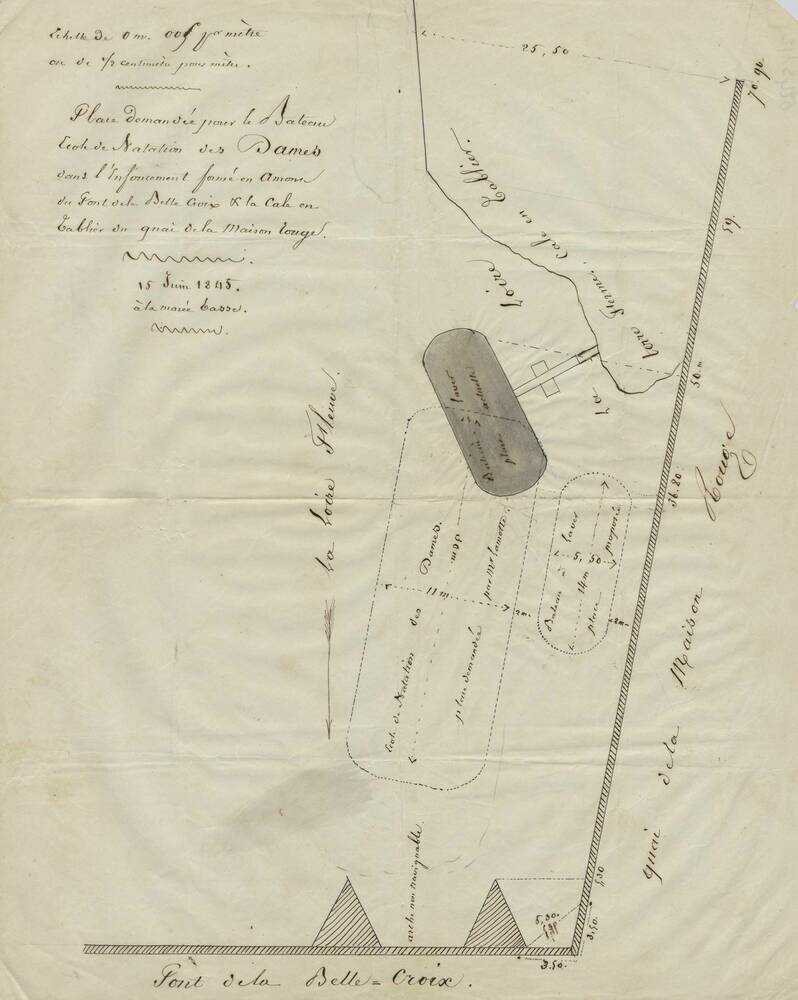 Echelle de 0 m. 005 pr mètre
ou de 1/2 centimètre pour mètre.
Place demandée pour le Bateau
Ecole de Natation des Dames
dans l'Enfoncement formé en Amont
du Pont de la Belle Croix & la Cale en
Tablier du quai de la Maison rouge.
15 Juin 1845.
à la marée basse.
25,50
70.90
59.
Cale en Tablier.
terre ferme,
La Loire
50.m
36.20
Bateau à laver
place actuelle
La Loire Fleuve.
Ecole de Natation des Dames.
11 m
2m
place demandée par Mr Lamotte.
Bateau à laver
5,50
14m
place proposée
2m
quai de la Maison Rouge
arche non navigable
5,30
5,30
3,50
3.50
Pont de la Belle=Croix.